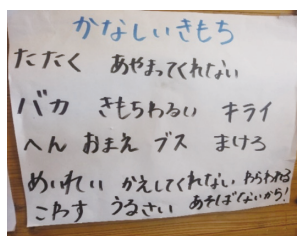 かなしいきもち
たたく あやまってくれない
バカ きもちわるい キライ
へん おまえ ブス まけろ
めいれい かえしてくれない わらわれる
こわす うるさい あそばないから!